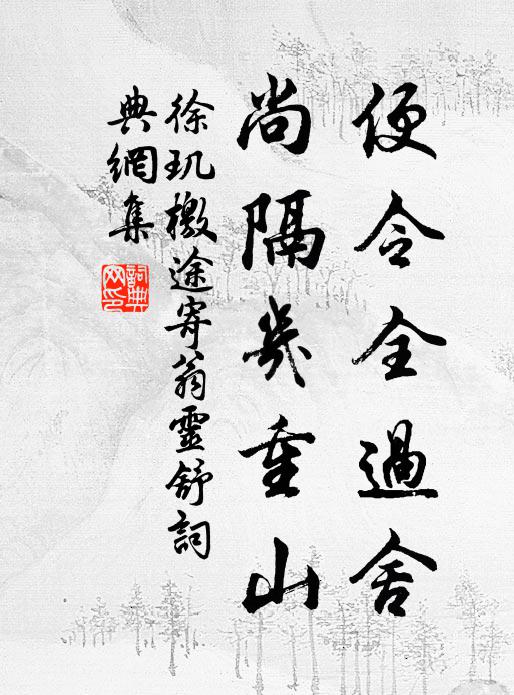 便令全過舍
尚隔幾重山
徐玑檄途寄翁靈舒詞
典網集
詞典
网印